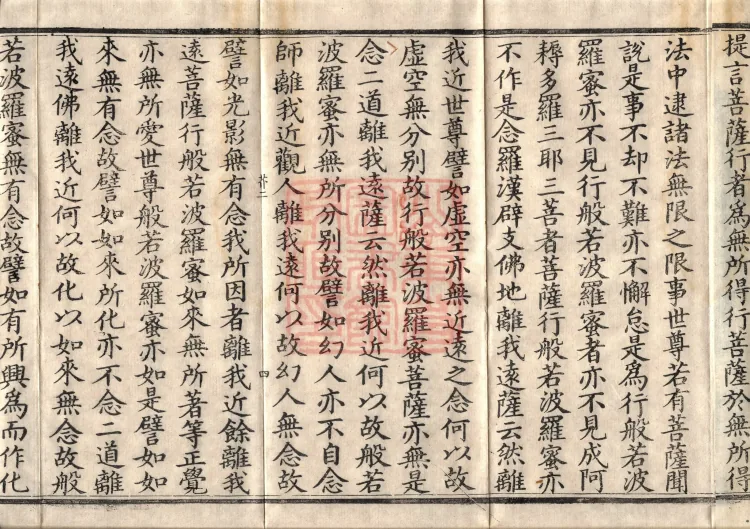 提言菩薩行者為無所得行菩薩於無所得
法中逮諸法無限之限事世尊若有菩薩聞
說是事不却不難亦不懈怠是為行般若波
羅蜜亦不見行般若波羅蜜者亦不見成阿
耨多羅三耶三菩者菩薩行般若波羅蜜亦
不作是念羅漢辟支佛地離我遠薩云然離
我近世尊譬如虛空亦無近遠之念何以故
虛空無分別故行般若波羅蜜菩薩亦無是
念二道離我遠薩云然離我近何以故般若
波羅蜜亦無所分別故譬如幻人亦不自念
師離我近觀人離我遠何以故幻人無念故
四
譬如光影無有念我所因者離我近餘離我
遠菩薩行般若波羅蜜如來無所著等正覺
亦無所愛世尊般若波羅蜜亦如是譬如如
來無有念故譬如如來所化亦不念二道離
我遠佛離我近何以故化以如來無念故般
若波羅蜜無有念故譬如有所興為而作化